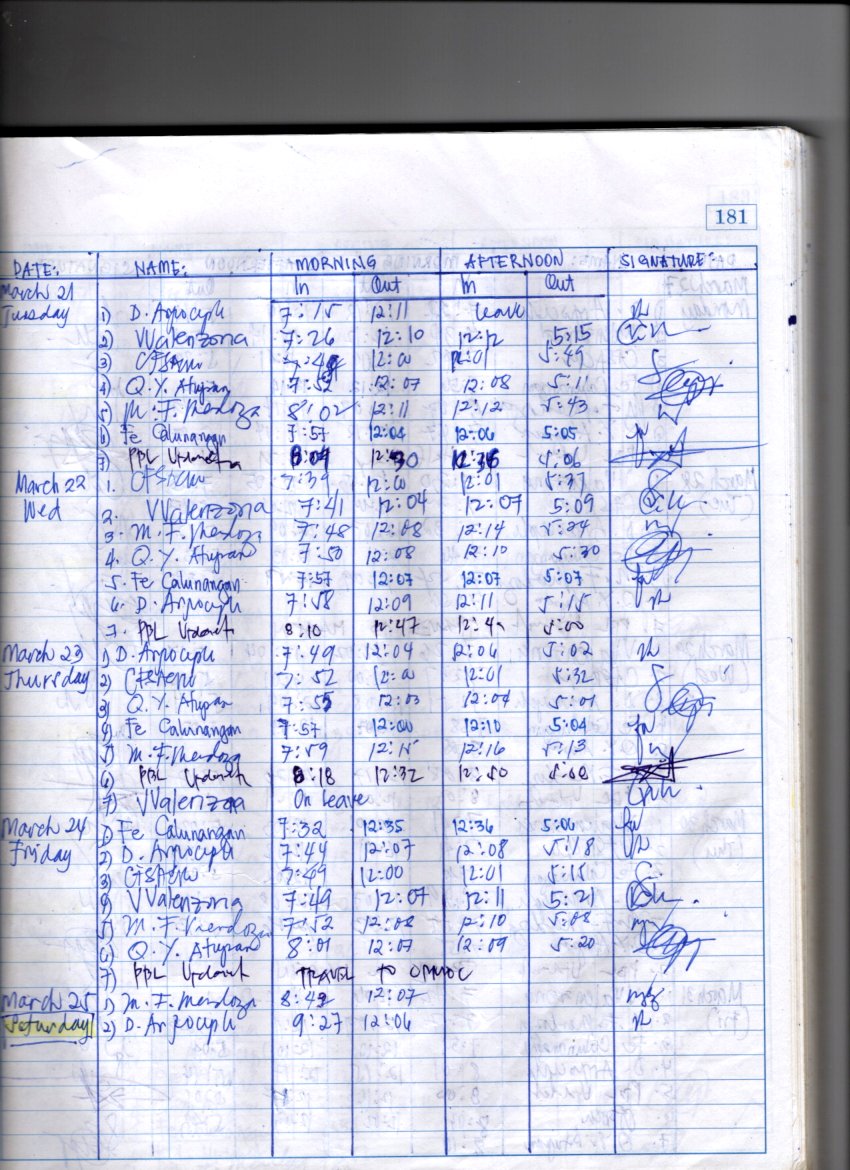 181
DATE: NAME: MORNING AFTERNOON SIGNATURE:
March 21 In Out In Out
Tuesday 1) D. 7:15 12:11 leave
2) VValenzona 7:26 12:10 12:12 5:15
3) 12:00 12:01 5:49
4) Q.Y. Atupan 7:52 12:07 12:08 5:11
5) M. F. Mendoza 8:02 12:11 12:12 5:43
6) Fe Calunangan 7:57 12:04 12:06 5:05
7) PBL 5:06
March 22 1. 7:39 12:00 12:01 5:37
Wed 2. VValenzona 7:41 12:04 12:07 5:09
3. M. F. Mendoza 7:48 12:08 12:14 5:24
4. Q.Y. Atupan 7:50 12:08 12:10 5:30
5. Fe Calunangan 7:57 12:07 12:07 5:07
6. D. 7:58 12:09 12:11 5:15
7. PBL 8:10 12:47 5:00
March 23 1) D. 7:49 12:04 12:06 5:02
Thursday 2) 7:52 12:00 12:01 5:32
3) Q.Y. Atupan 7:55 12:03 12:04 5:01
4) Fe Calunangan 7:57 12:00 12:10 5:04
5) M. F. Mendoza 7:59 12:15 12:16 5:13
6) PBL 8:18 12:32 12:50 5:00
7) VValenzona On leave
March 24 1) Fe Calunangan 7:32 12:35 12:36 5:06
Friday 2) D. 7:44 12:07 12:08 5:18
3) 7:49 12:00 12:01 5:15
4) VValenzona 7:49 12:07 12:11 5:21
5) M. F. Mendoza 7:52 12:08 12:10 5:08
6) Q.Y. Atupan 8:01 12:07 12:09 5:20
7) PBL TRAVEL TO ORMOC
March 25 1) M. F. Mendoza 8:42 12:07
Saturday 2) D. 9:27 12:06